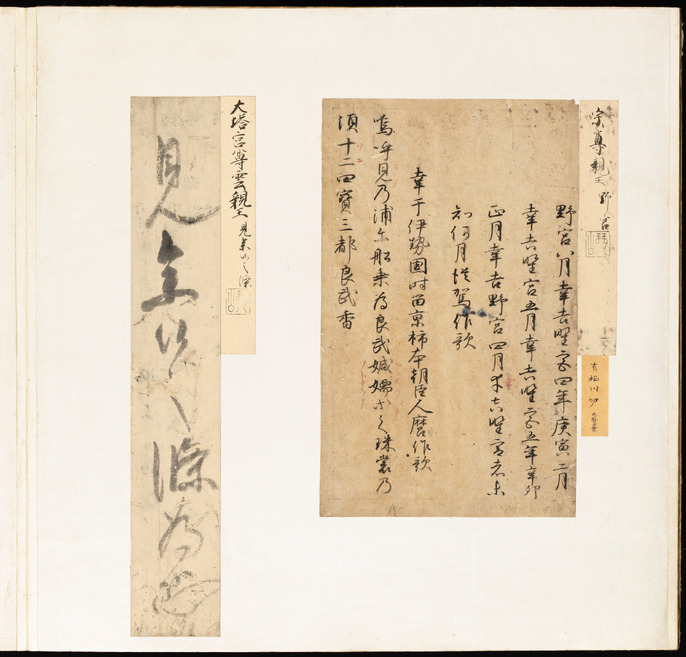 宗尊親王 野宮
有栖川切
野宮八月幸吉野宮四年庚寅二月
幸吉野宮五月幸吉野宮五年辛卯
正月幸吉野宮四月幸吉野宮者未
知何月従駕作歌
幸于伊勢國時留京柿本朝臣人麿作歌
嗚呼見乃浦尓船乗為良武嬬等之珠裳乃
須十二四寳三都良武香
大塔宮尊雲親王 見
見 條為